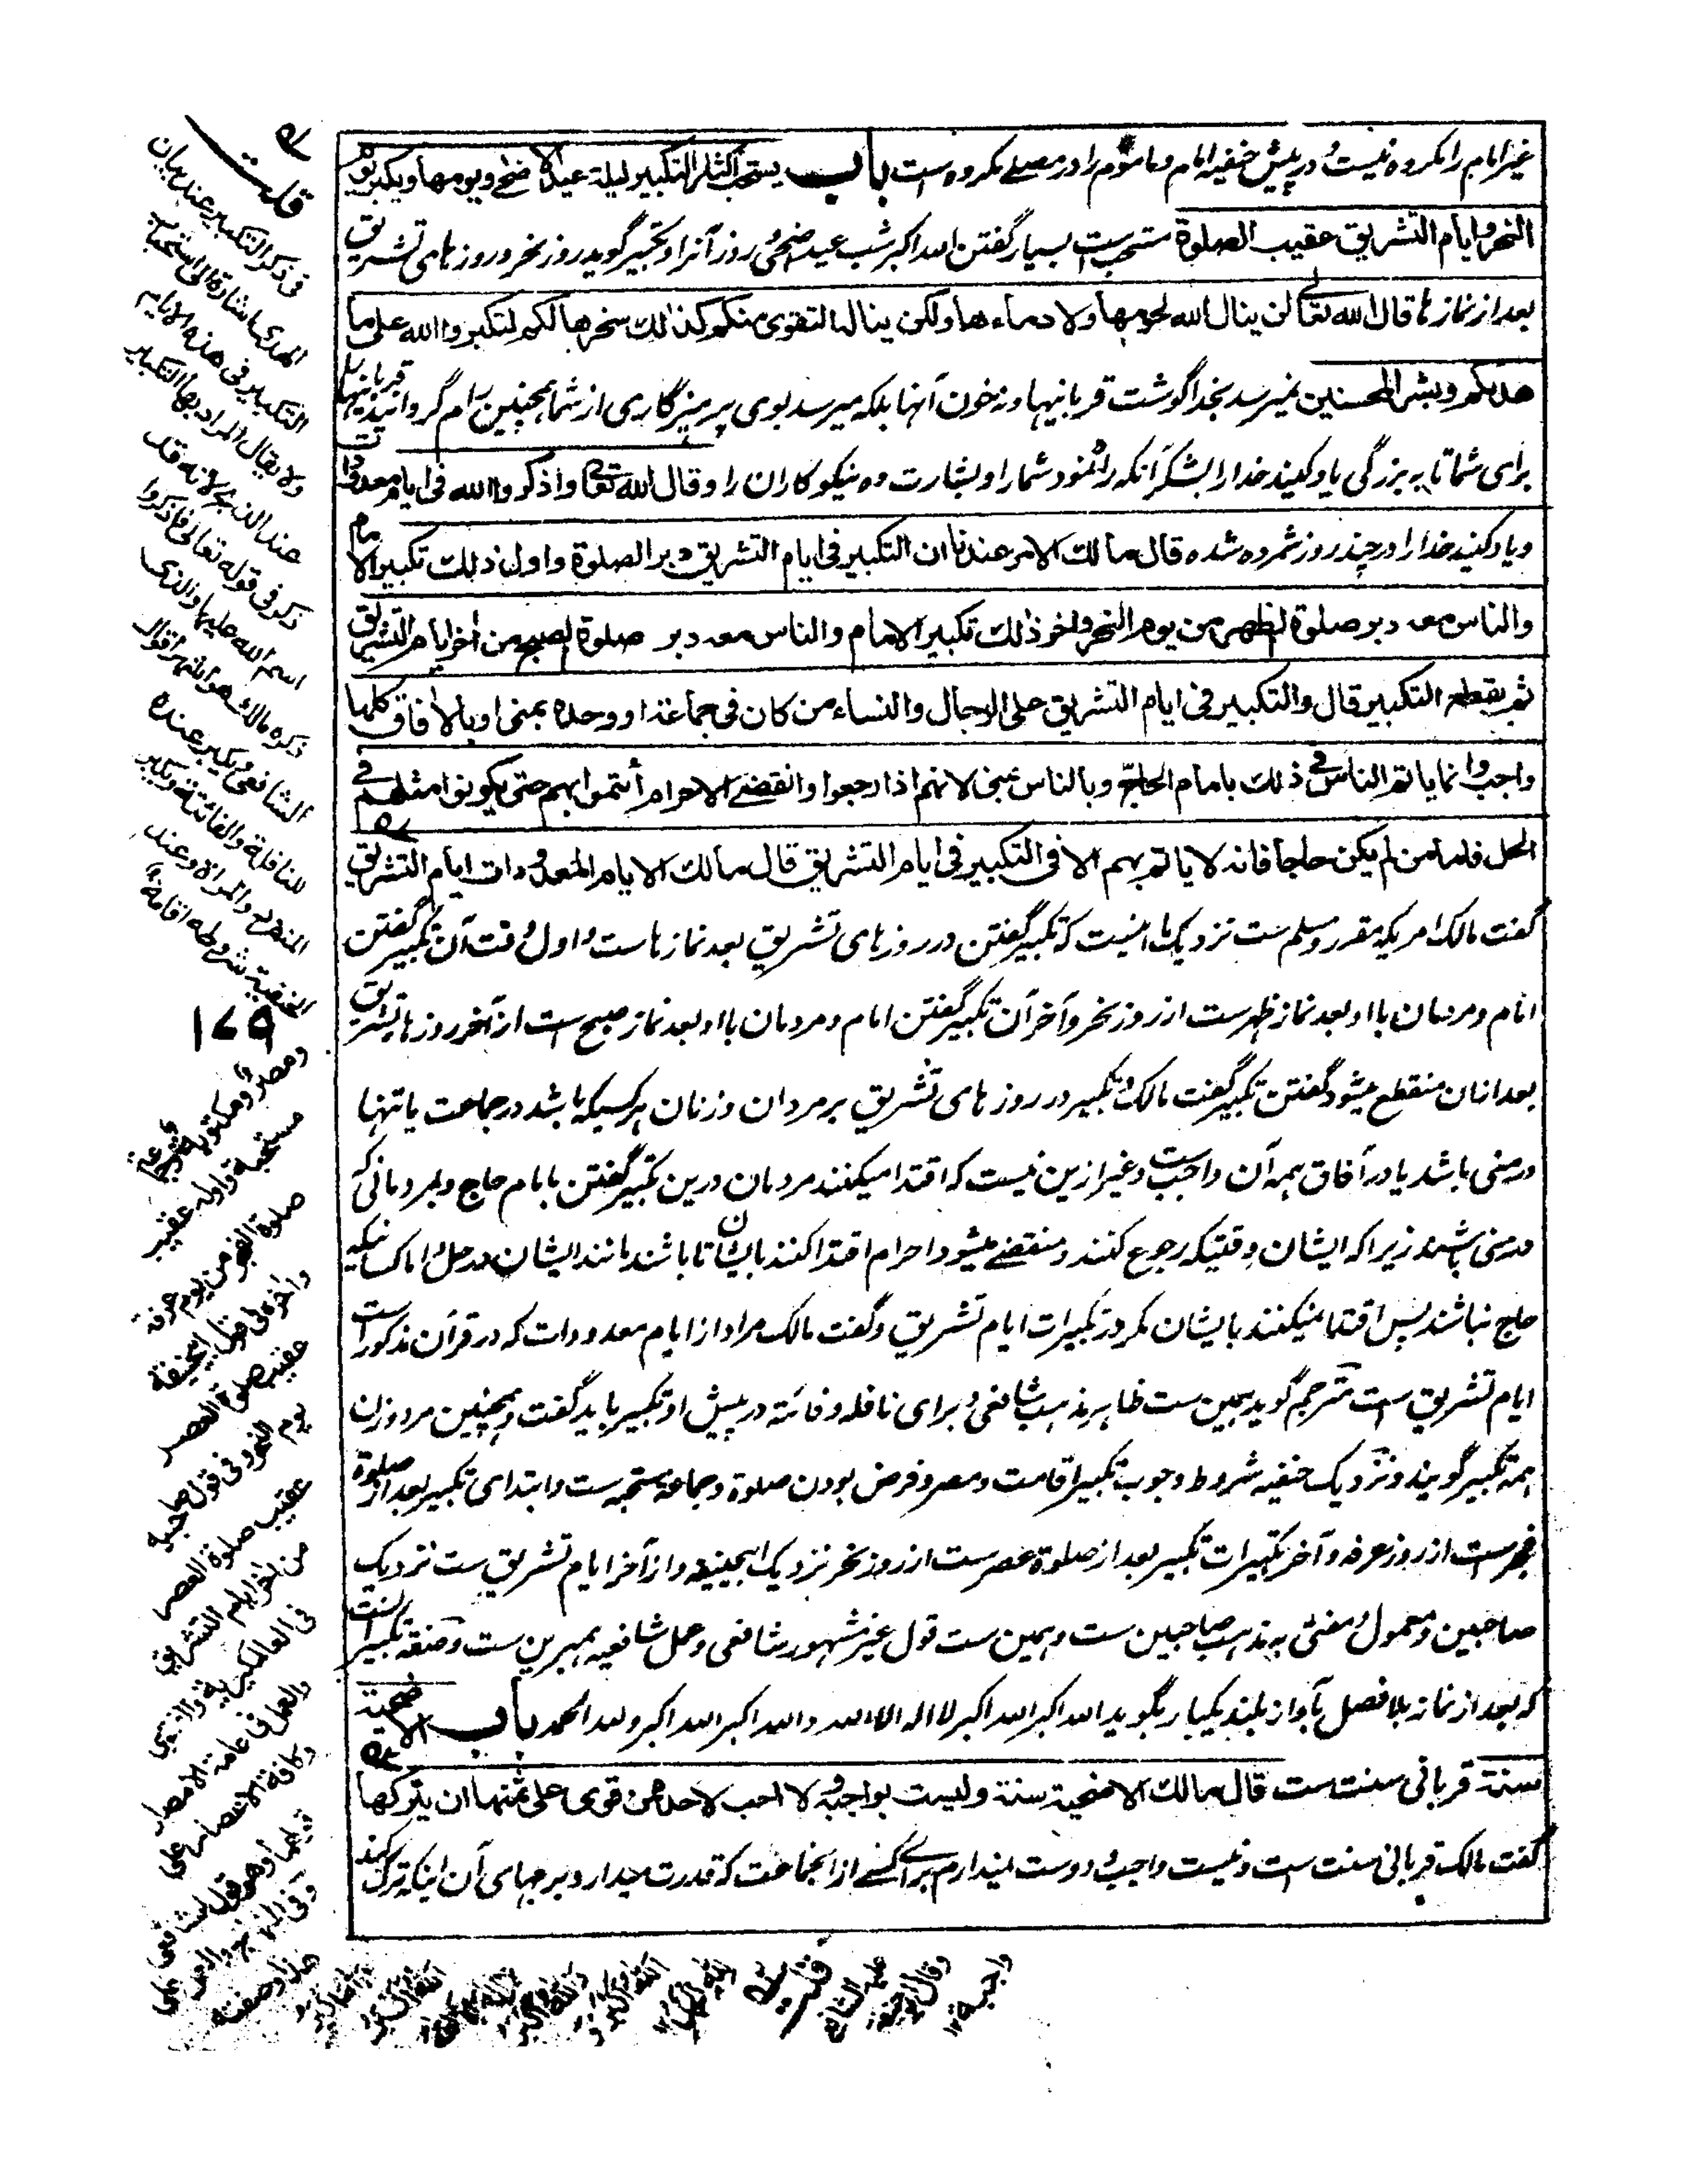 غیر امام را مکروه نیست و در پیش حنفیه امام و ماموم را در مصلے مکروه ست باب یستحب اکثار التکبیر لیلة عید الاضحے و یومها ویکبر یوم
النحر وایام التشریق عقیب الصلوة مستحب ست بسیار گفتن الله اکبر شب عید اضحی و روز آنرا و تکبیر گوید روز نحر و روز های تشریق
بعد از نماز ها قال الله تعالی لن ینال الله لحومها ولا دماءها ولکن یناله التقوی منکم کذلك سخرها لکم لتکبروا الله علی ما
هدىکم وبشر المحسنین نمیرسد بخدا گوشت قربانیها و نه خون آنها بلکه میرسد بوی پرهیزگاری از شما همچنین رام گردانید قربانیها
برای شما تا به بزرگی یاد کنید خدا را بشکر آنکه راه نمود شما را و بشارت ده نیکو کاران را وقال الله تعالی واذکروا الله فی ایام معدودات
ویاد کنید خدا را در چند روز شمرده شده قال مالك الامر عندنا ان التکبیر فی ایام التشریق دبر الصلوة واول ذلك تکبیر الامام
والناس معه دبر صلوة الظهر من یوم النحر واخر ذلك تکبیر الامام والناس معه دبر صلوة الصبح من اخر ایام التشریق
ثم یقطع التکبیر قال والتکبیر فی ایام التشریق علی الرجال والنساء من کان فی جماعة او وحده بمنی او بالافاق کلها
واجب وانما یاتم الناس فی ذلك بامام الحاج وبالناس بمنی لانهم اذا رجعوا وانقضے الاحرام أئتموا بهم حتی یکونوا مثلهم فے
الحل فاما من لم یکن حاجا فانه لا یاتم بهم الا فی التکبیر فی ایام التشریق قال مالك الایام المعدودات ایام التشریق
گفت مالک امریکه مقرر و مسلم ست نزدیک ما اینست که تکبیر گفتن در روز های تشریق بعد نماز هاست و اول وقت آن تکبیر گفتن
امام و مردمان با او بعد نماز ظهرست از روز نحر و آخر آن تکبیر گفتن امام و مردمان با او بعد نماز صبح ست از آخر روز ها تشریق
بعد ازان منقطع میشود گفتن تکبیر گفت مالک و تکبیر در روز های تشریق بر مردان و زنان هر کسیکه باشد در جماعت یا تنها
در منی باشد یا در آفاق همه آن واجب ست و غیر ازین نیست که اقتدا میکنند مردمان درین تکبیر گفتن بامام حاج و بمردمانی که
در منی باشند زیرا که ایشان وقتیکه رجوع کنند و منقضے میشود احرام اقتدا کنند بایشان تا باشند مانند ایشان در حل و اما کسانیکه
حاج نباشند پس اقتدا نمیکنند بایشان مگر در تکبیرات ایام تشریق و گفت مالک مراد از ایام معدودات که در قرآن مذکور است
ایام تشریق ست مترجم گوید همین ست ظاهر مذهب شافعی و برای نافله و فائته در پیش او تکبیر باید گفت و همچنین مرد و زن
همه تکبیر گویند و نزدیک حنفیه شروط وجوب تکبیر اقامت و مصر و فرض بودن صلوة و جماعة مستحبه ست و ابتدای تکبیر بعد از صلوة
فجرست از روز عرفه و آخر تکبیرات تکبیر بعد از صلوة عصرست از روز نحر نزدیک ابیحنیفه و از آخر ایام تشریق ست نزدیک
صاحبین و معمول و مفتی به مذهب صاحبین ست و همین ست قول غیر مشهور شافعی و عمل شافعیه بهمبرین ست وصفة تکبیر آنست
که بعد از نماز بلا فصل بآواز بلند یکبار بگوید الله اکبر الله اکبر لا اله الا الله و الله اکبر الله اکبر ولله الحمد باب الاضحیة
سنة قربانی سنت ست قال مالك الاضحیة سنة ولیست بواجبة ولا احب لاحد ممن قوی علی ثمنها ان یترکها
گفت مالک قربانی سنت ست و نیست واجب و دوست نمیدارم برای کسے از انجماعت که قدرت میدارد بر بهای آن اینکه ترک کند
قلت
فی ذکر التکبیر عند بیان
الهدی اشارة الی استحباب
التکبیر فی هذه الایام
ولا یقال المراد بها التکبیر
عند الذبح لانه قد
ذکر فی قوله تعالی فاذکروا
اسم الله علیها والذی
ذکره مالك هو اشهر اقوال
الشافعی ویکبر عنده
للنافلة والفائتة ویکبر
المنفرد والمراة وعند
الحنفیة شروطه اقامة
۱۷۹
ومصر ومکتوبة وجماعة
مستحبة واوله عقیب
صلوة الفجر من یوم عرفة
واخره فی قول ابیحنیفة
عقیب صلوة العصر
یوم النحر وفی قول صاحبیه
عقیب صلوة العصر
من اخر ایام التشریق
فی العالمکیریة والفتوی
والعمل فی عامة الامصار
وکافة الاعصار علی
قولهما وهو قول للشافعی